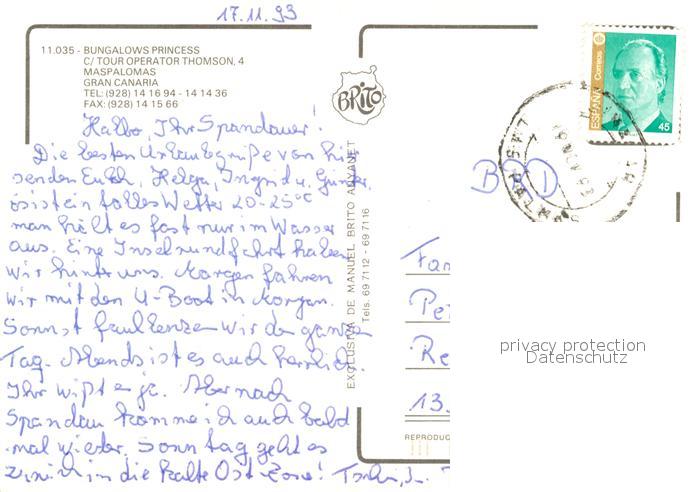 17.11.93
11.035 - BUNGALOWS PRINCESS
C/ TOUR OPERATOR THOMSON, 4
MASPALOMAS
GRAN CANARIA
TEL: (928) 14 16 94 - 14 14 36
FAX: (928) 14 15 66
Hallo, Ihr Spandauer!
Die besten Urlaubsgrüße von hi
senden Euch, Helga, Ingrid u. Günter,
es ist ein tolles Wetter 20-25°C
man hält es fast nur im Wasser
aus. Eine Inselrundfahrt haben
wir hinter uns. Morgen fahren
wir mit den U-Boot in Morgan.
Sonnst faullenzen wir de ganze
Tag. Abends ist es auch herrlich.
Ihr wißt e ja. Aber nach
Spandau komme ich auch bald
mal wieder. Sonntag geht es
in die kalte Ost-Zone!
BRITO
EXCLUSIVA DE MANUEL BRITO AUYANET
Tels. 69 71 12 - 69 71 16
ESPAÑA Correos
45
BRD
Fam
Pe
Re
13.
REPRODUC
privacy protection
Datenschutz